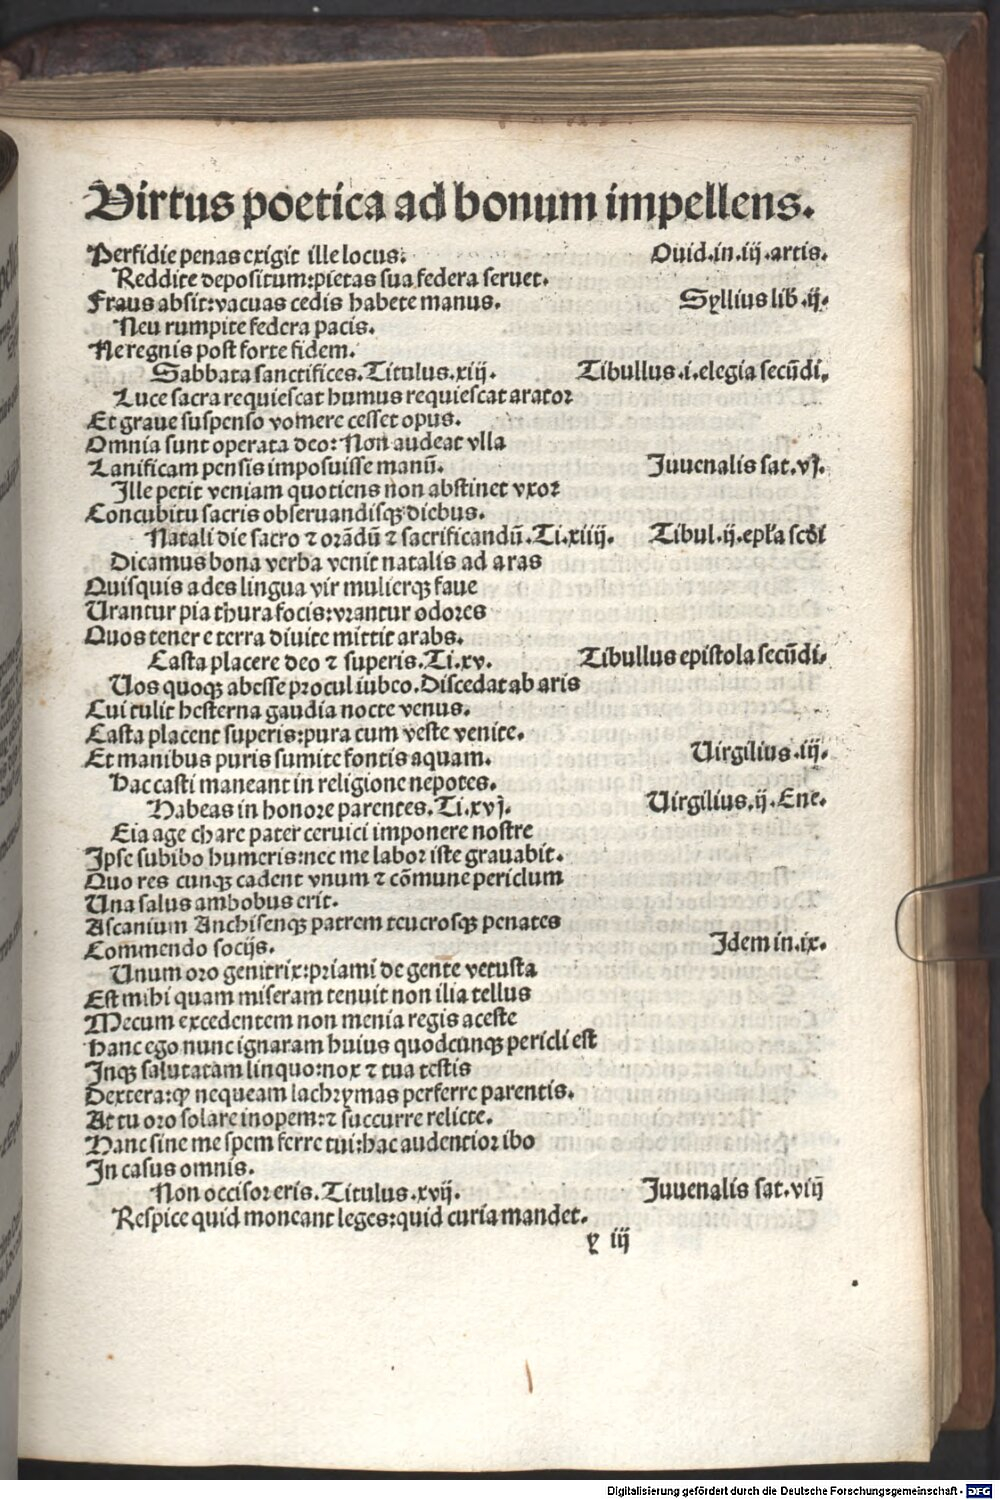 Virtus poetica ad bonum impellens.
Perfidie penas exigit ille locus. Ouid.in.iij.artis.
Reddite depositum:pietas sua federa seruet.
Fraus absit:vacuas cedis habete manus. Syllius lib.ij.
Neu rumpite federa pacis.
Ne regnis postforte fidem.
Sabbata sanctifices.Titulus.xiij. Tibullus.i.elegia secūdi.
Luce sacra requiescat humus requiescat arator
Et graue suspenso vomere cesset opus.
Omnia sunt operata deo:Non audeat vlla
Lanificam pensis imposuisse manū. Juuenalis sat.vj.
Ille petit veniam quotiens non abstinet vxor
Concubitu sacris obseruandisqꝫ diebus.
Natali die sacro ⁊ orādū ⁊ sacrificandū.Ti.xiiij. Tibul.ij.epła scdi
Dicamus bona verba venit natalis ad aras
Quisquis ades lingua vir mulierqꝫ faue
Urantur pia thura focis:vrantur odores
Quos tener e terra diuite mittit arabs.
Casta placere deo ⁊ superis.Ti.xv. Tibullus epistola secūdi.
Uos quoqꝫ abesse procul iubeo.Discedat ab aris
Cui tulit hesterna gaudia nocte venus.
Casta placent superis:pura cum veste venite.
Et manibus puris sumite fontis aquam. Uirgilius.iij.
Hac casti maneant in religione nepotes.
Habeas in honore parentes.Ti.xvj. Uirgilius.ij.Ene.
Eia age chare pater ceruici imponere nostre
Ipse subibo humeris:nec me labor iste grauabit.
Quo res cunqꝫ cadent vnum ⁊ cōmune periclum
Una salus ambobus erit.
Ascanium Anchisenqꝫ patrem teucrosqꝫ penates
Commendo socijs. Idem in.ix.
Unum oro genitrix:priami de gente vetusta
Est mihi quam miseram tenuit non ilia tellus
Mecum excedentem non menia regis aceste
Hanc ego nunc ignaram huius quodcunqꝫ pericli est
Inqꝫ salutatam linquo:nox ⁊ tua testis
Dextera:ꝙ nequeam lachrymas perferre parentis.
At tu oro solare inopem:⁊ succurre relicte.
Hanc sine me spem ferre tui:hac audentior ibo
In casus omnis.
Non occisor eris.Titulus.xvij. Juuenalis sat.viij
Respice quid moneant leges:quid curia mandet.
y iij
Digitalisierung gefördert durch die Deutsche Forschungsgemeinschaft - DFG